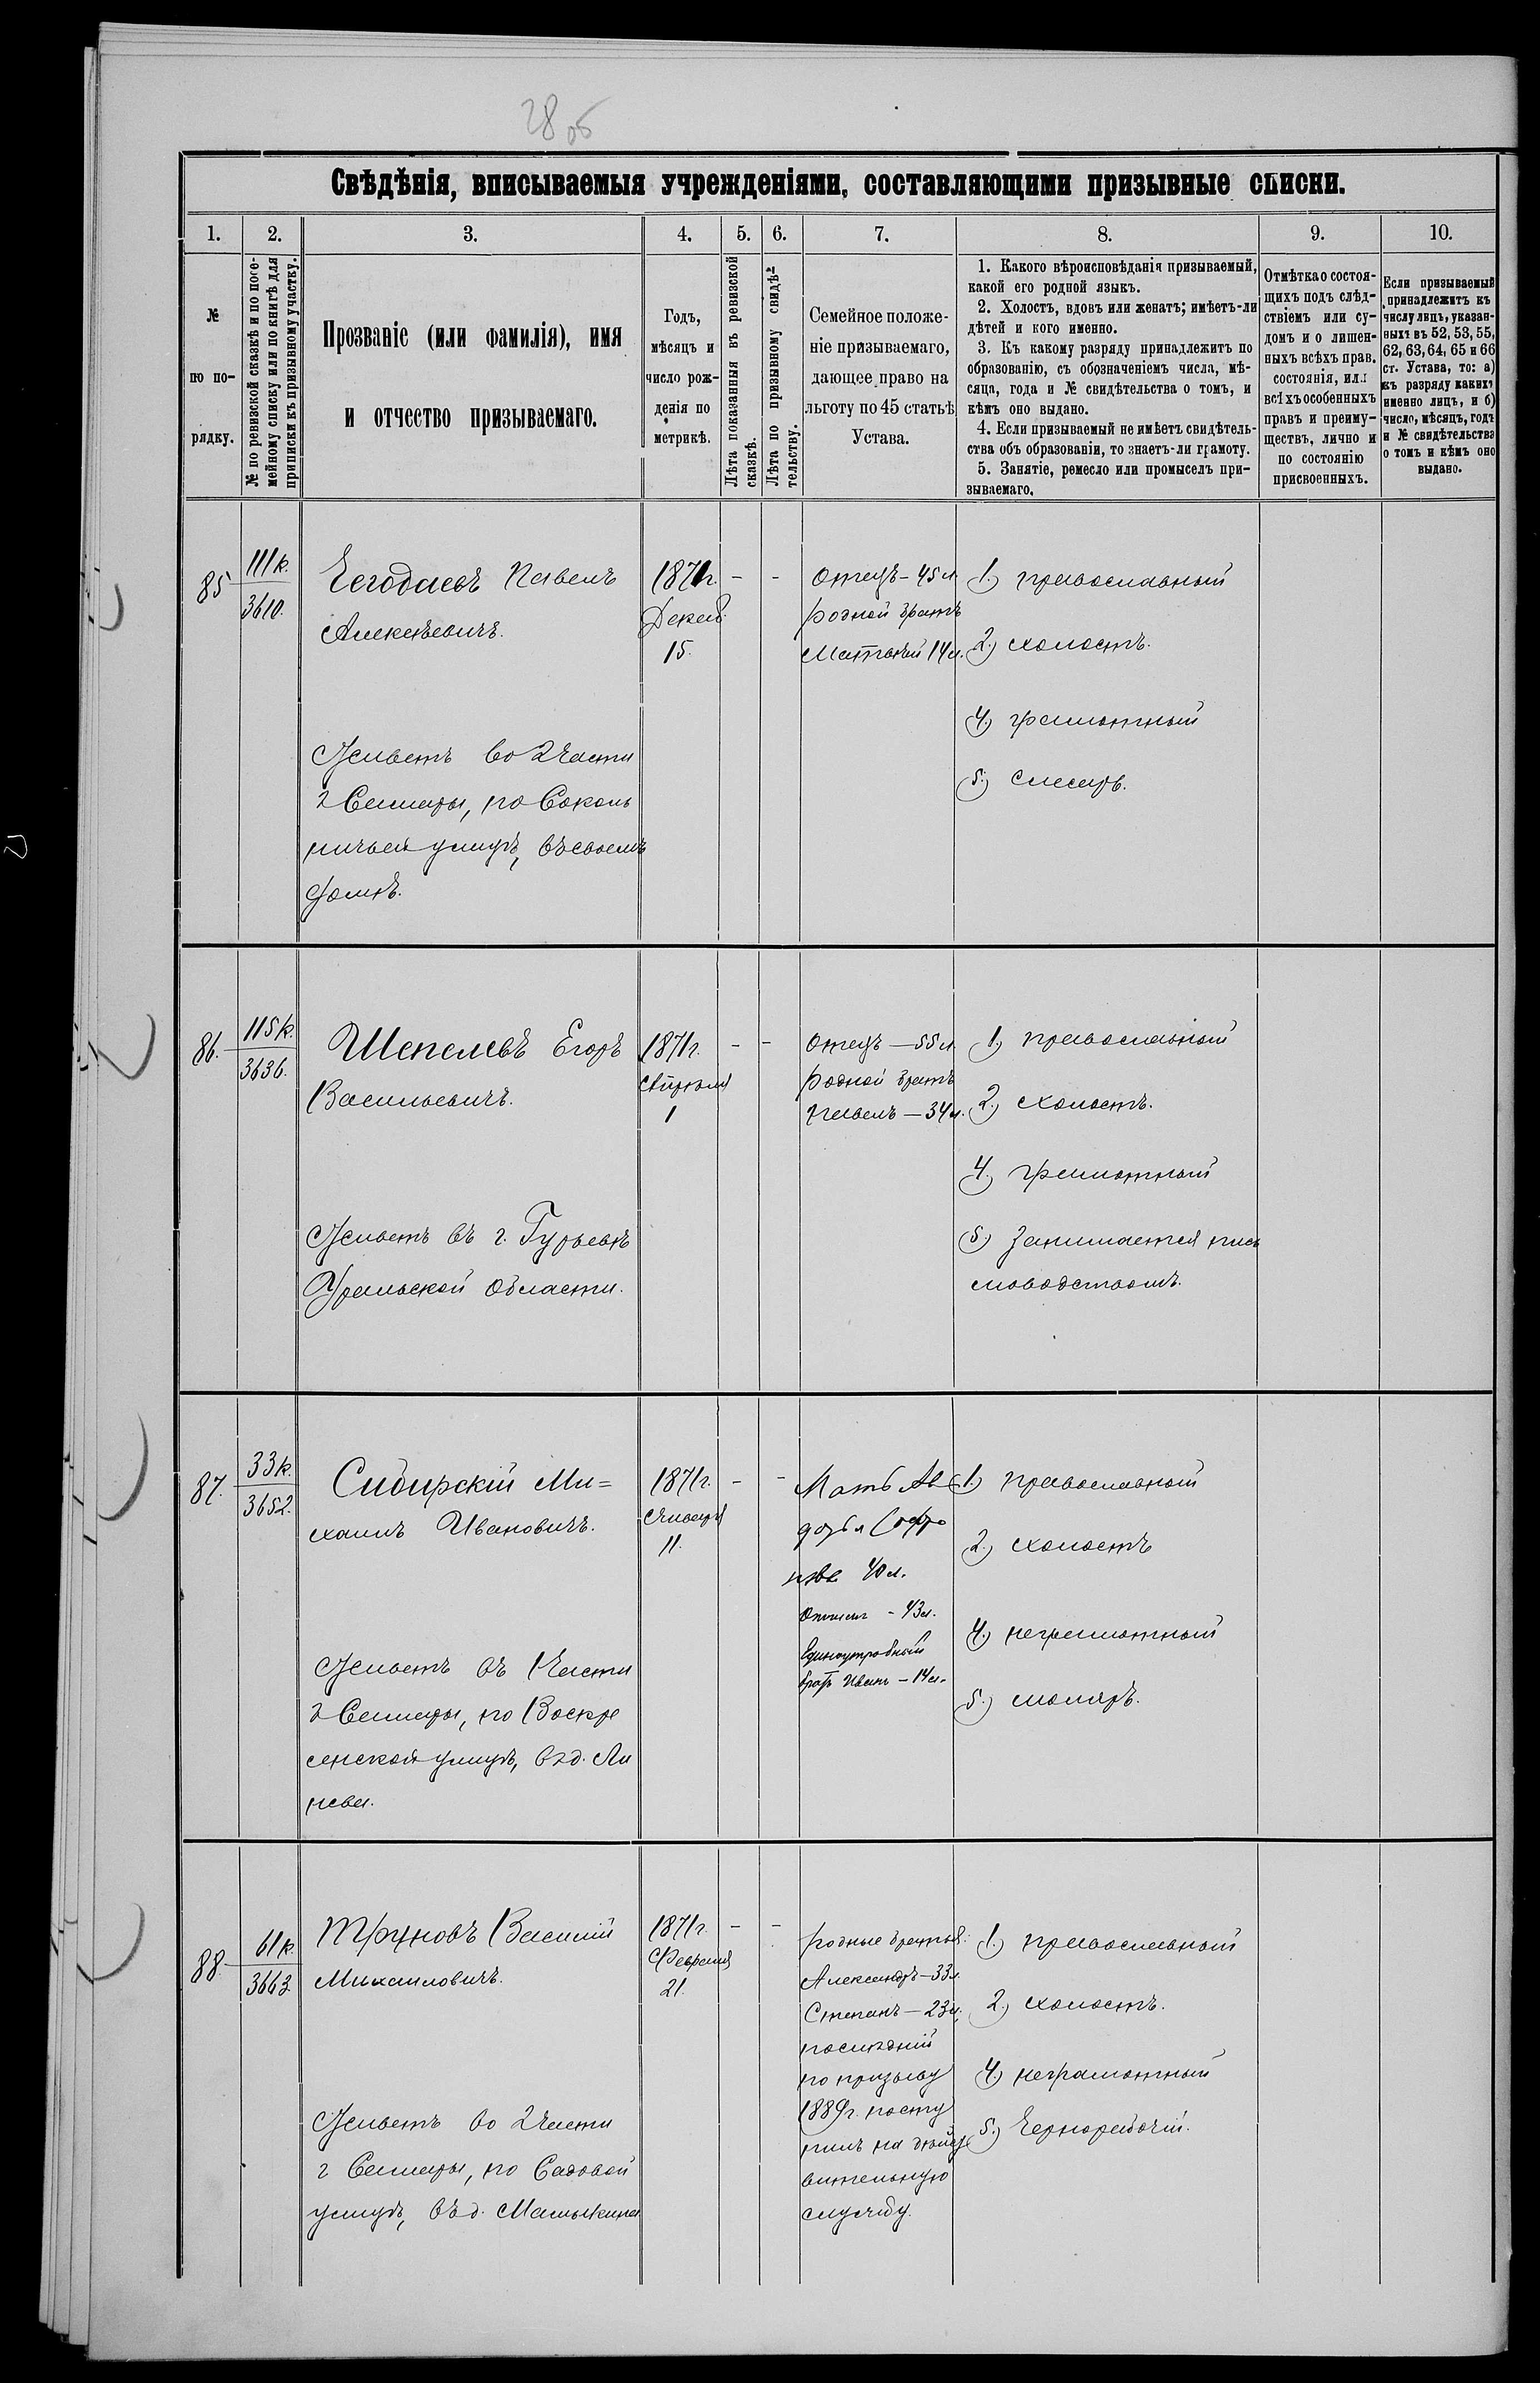 28 об
Свѣдѣнія, вписываемыя учрежденіями, составляющими призывные списки.
1.
2.
3.
4.
5.
6.
7.
8.
9.
10.
№
по по-
рядку.
№ по ревизской сказкѣ и по посе-
мейному списку или по книгѣ для
приписки къ призывному участку.
Прозваніе (или фамилія), имя
и отчество призываемаго.
Годъ,
мѣсяцъ и
число рож-
денія по
метрикѣ.
Лѣта показанныя въ ревизской
сказкѣ.
Лѣта по призывному свидѣ-
тельству.
Семейное положе-
ніе призываемаго,
дающее право на
льготу по 45 статьѣ
Устава.
1. Какого вѣроисповѣданія призываемый,
какой его родной языкъ.
2. Холостъ, вдовъ или женатъ; имѣетъ-ли
дѣтей и кого именно.
3. Къ какому разряду принадлежитъ по
образованію, съ обозначеніемъ числа, мѣ-
сяца, года и № свидѣтельства о томъ, и
кѣмъ оно выдано.
4. Если призываемый не имѣетъ свидѣтель-
ства объ образованіи, то знаетъ-ли грамоту.
5. Занятіе, ремесло или промыселъ при-
зываемаго.
Отмѣтка о состоя-
щихъ подъ слѣд-
ствіемъ или су-
домъ и о лишен-
ныхъ всѣхъ прав.
состоянія, или
всѣхъ особенныхъ
правъ и преиму-
ществъ, лично и
по состоянію
присвоенныхъ.
Если призываемый
принадлежитъ къ
числу лицъ, указан-
ныхъ въ 52, 53, 55,
62, 63, 64, 65 и 66
ст. Устава, то: а)
къ разряду какихъ
именно лицъ, и б)
число, мѣсяцъ, годъ
и № свидѣтельства
о томъ и кѣмъ оно
выдано.
85
111 к.
3610.
Чегодаевъ Павелъ
Алексѣевичъ.
Живетъ во 2 части
г Самары, по Соколь
ничьей улицѣ, въ своемъ
домѣ.
1871г.
Декаб.
15.
-
-
Отецъ - 45 л
родной братъ
Матвѣй 14 л.
1.) православный
2.) холостъ.
4.) грамотный
5.) Слесарь.
86.
115 к.
3636.
Шепелевъ Егоръ
Васильевичъ.
Живетъ въ г. Гурьевѣ
Уральской Области.
1871г.
Апрѣля
1
-
-
Отецъ — 55 л
родной братъ
Павелъ — 34 л.
1.) православный
2.) холостъ.
4.) грамотный
5.) Занимается пись
моводствомъ.
87.
33 к.
3652.
Сибирскій Ми=
хаилъ Ивановичъ.
Живетъ въ 1 части
г Самары, по Воскре
сенской улицѣ, въ д. Ли
нева.
1871г.
Января
11.
-
-
Мать Ав
дотья Софро
нова 40 л.
Отчим - 43 л.
Единоутробный
братъ Иванъ - 14 л.
1.) православный
2.) холостъ
4.) неграмотный
5.) столяръ.
88.
61 к.
3663.
Труновъ Василій
Михаиловичъ.
Живетъ во 2 части
г Самары, по Садовой
улицѣ, въ д. Малышкина
1871г.
Февраля
21.
-
-
родные братья:
Александръ — 33 л.
Степанъ — 23 л.,
послѣдній
по призыву
1889 г. посту
пилъ на дѣйс
вительную
службу.
1.) православный
2.) холостъ.
4.) неграмотный
5.) Чернорабочій.